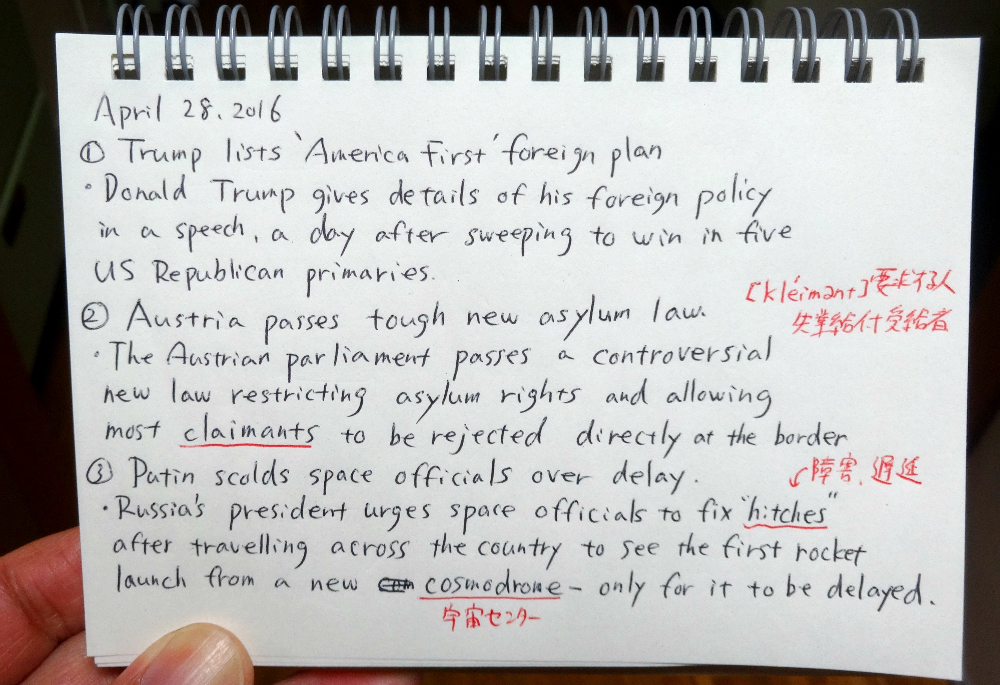 April 28. 2016
① Trump lists 'America First' foreign plan
・Donald Trump gives details of his foreign policy
in a speech, a day after sweeping to win in five
US Republican primaries.
[kléimənt] 要求する人
② Austria passes tough new asylum law.
失業給付受給者
・The Austrian parliament passes a controversial
new law restricting asylum rights and allowing
most claimants to be rejected directly at the border
③ Putin scolds space officials over delay.
障害、遅延
・Russia's president urges space officials to fix "hitches"
after travelling across the country to see the first rocket
launch from a new cosmodrone – only for it to be delayed.
宇宙センター